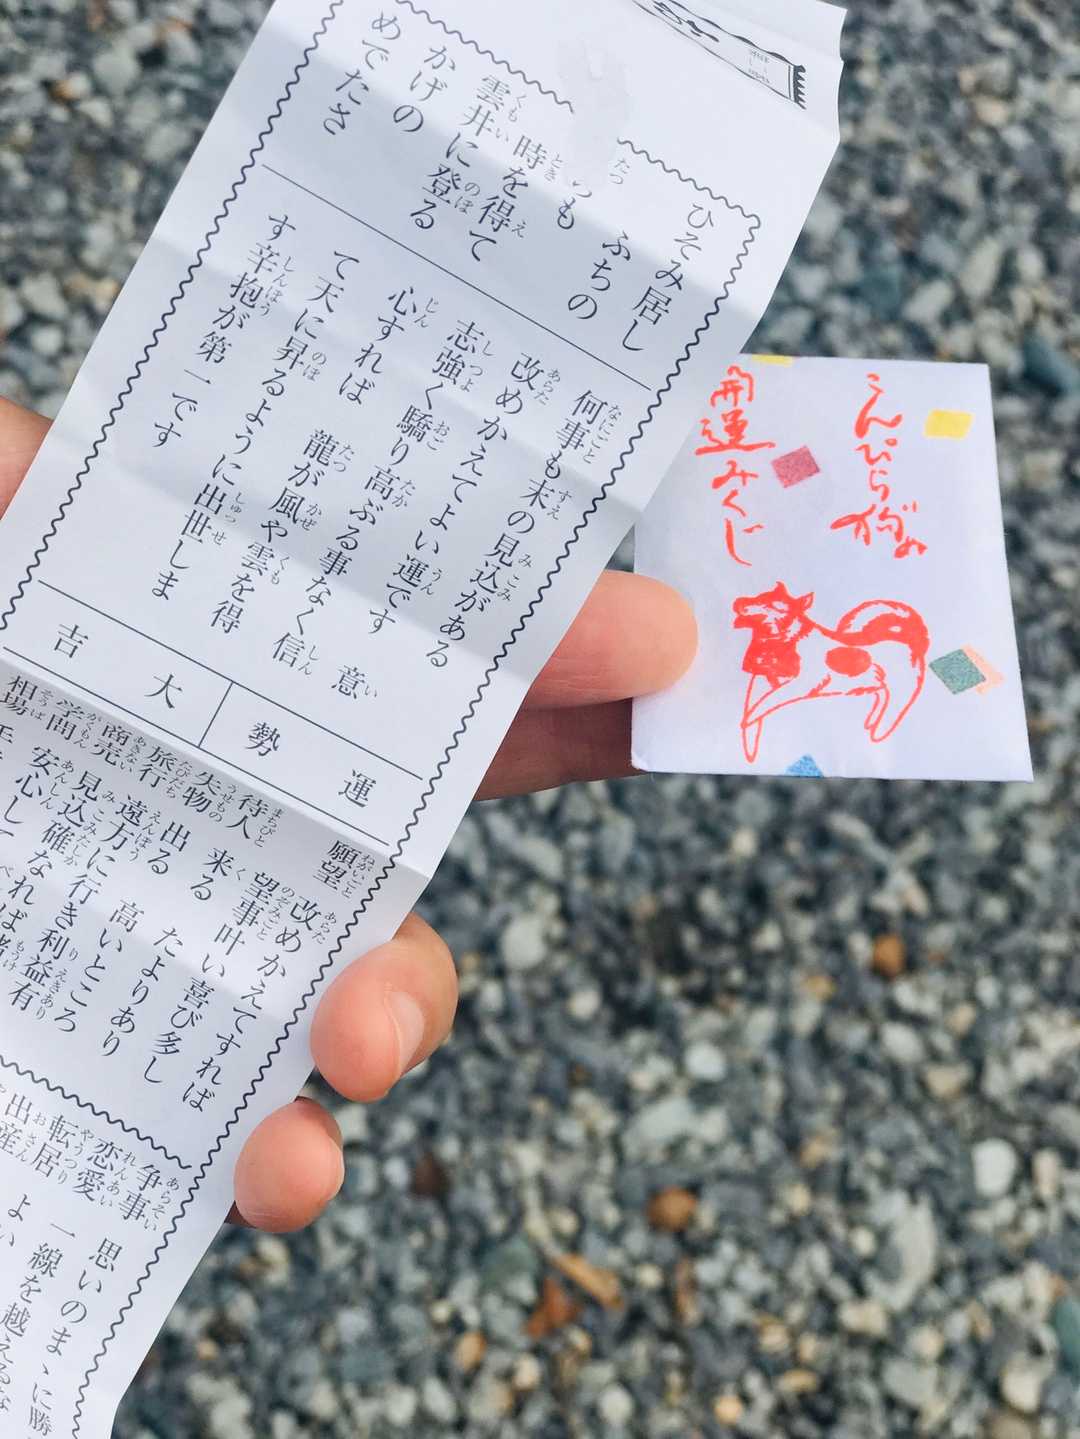 ひそみ居し
ふちの
も
時を得て
雲井に登る
かげの
めでたさ
何事も末の見込がある
改めかえてよい運です
意
志強く驕り高ぶる事なく信
心すれば 龍が風や雲を得
て天に昇るように出世しま
す 辛抱が第一です
運勢
大吉
願望 改めかえてすれば
望事叶い喜び多し
待人 来る たよりあり
失物 出る 高いところ
旅行 遠方に行き利益有
商売 見込確なれば
学問 安心して
相場
争事 思いのまゝに勝
恋愛 一線を越える
転居 よい
出産
こんぴら狗の
開運みくじ